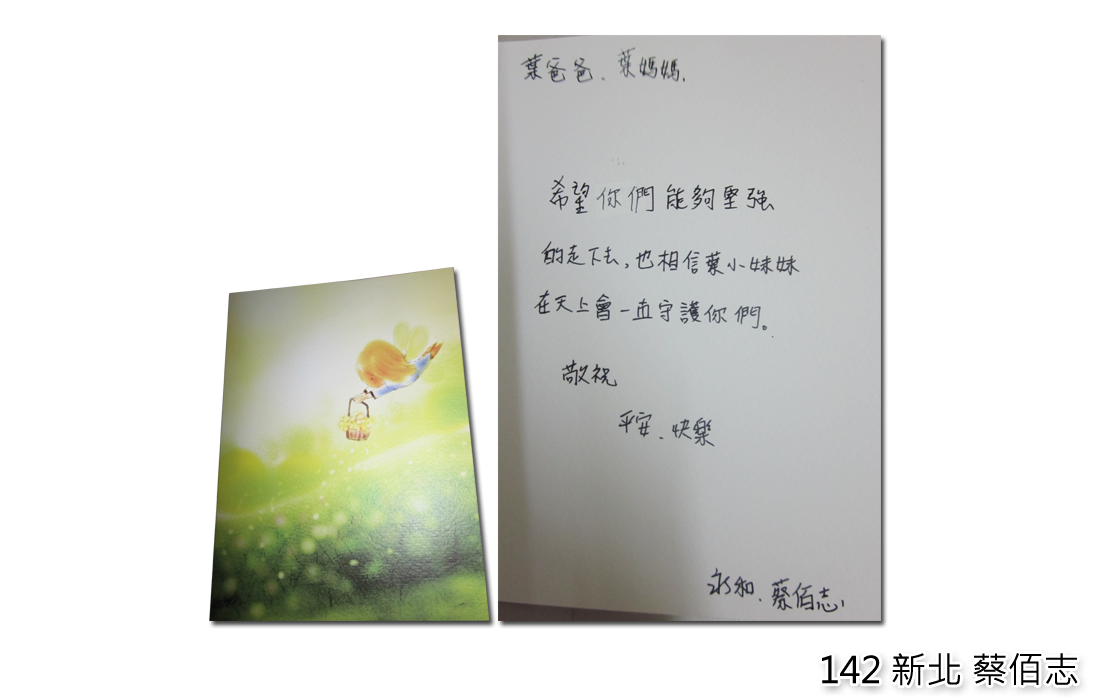 葉爸爸、葉媽媽,
希望你們能夠堅強
的走下去,也相信葉小妹妹
在天上會一直守護你們。
敬祝
平安、快樂
永和、蔡佰志
142 新北 蔡佰志